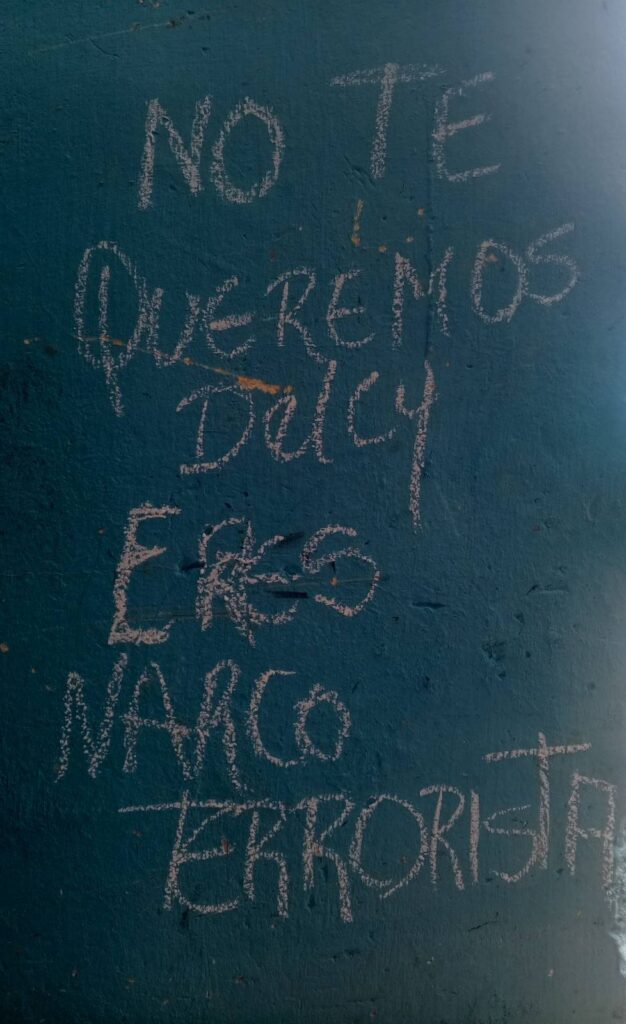 NO TE
QUEREMOS
Delcy
ERES
NARCO
TERRORISTA